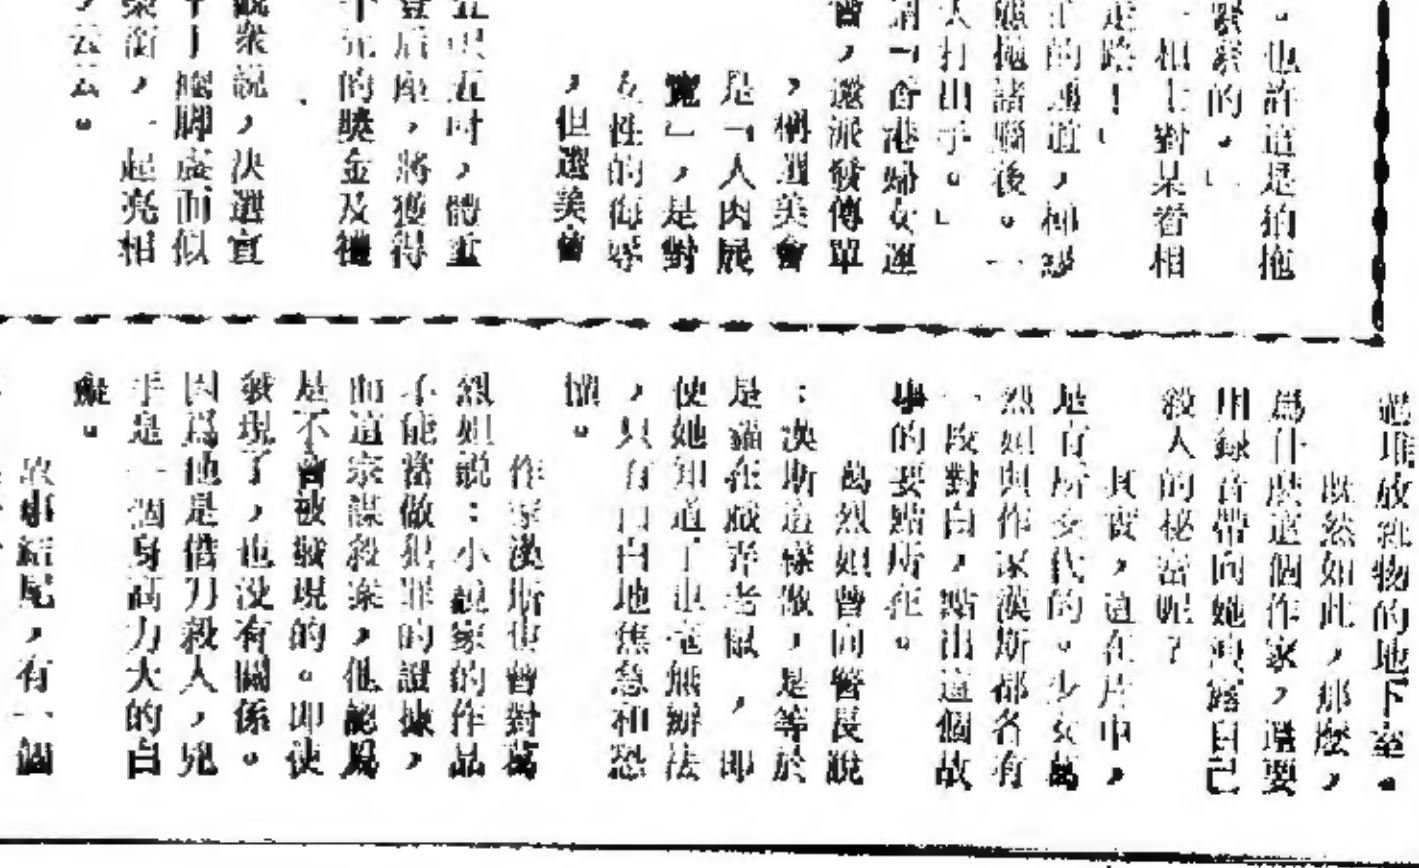 。也許這是拍拖
緊張的。」
相士對某看相
走路!」
的通道,
拋諸腦後。一
人打出手。」
「香港婦女運
會,邀派發傳單
,稱選美會
是「人肉展
覽」,是對
女性的侮辱
,但選美會
五呎五吋,體重
登后座,將獲得
千元的獎金及禮
觀衆說,決選宣
脚虛而似
銜,一起亮相
云云。
過堆放雜物的地下室。
既然如此,那麽,
爲什麽這個作家,還要
用錄音帶向她洩露自己
殺人的秘密呢?
其實,這在片中,
是有所交代的。少女葛
烈妲與作家漢斯都各有
一段對白,點出這個故
事的要點所在。
葛烈妲曾向警長說
:漢斯這樣做,是等於
是貓在戲弄老鼠,即
使她知道了也毫無辦法
,只有口白地焦急和恐
懼。
作家漢斯也曾對葛
烈妲說:小說家的作品
不能當做犯罪的證據,
而這宗謀殺案,他認爲
是不會被發現的。即使
發現了,也沒有關係。
因爲他是借刀殺人,兇
手是一個身高力大的白
癡。
故事結尾,有一個